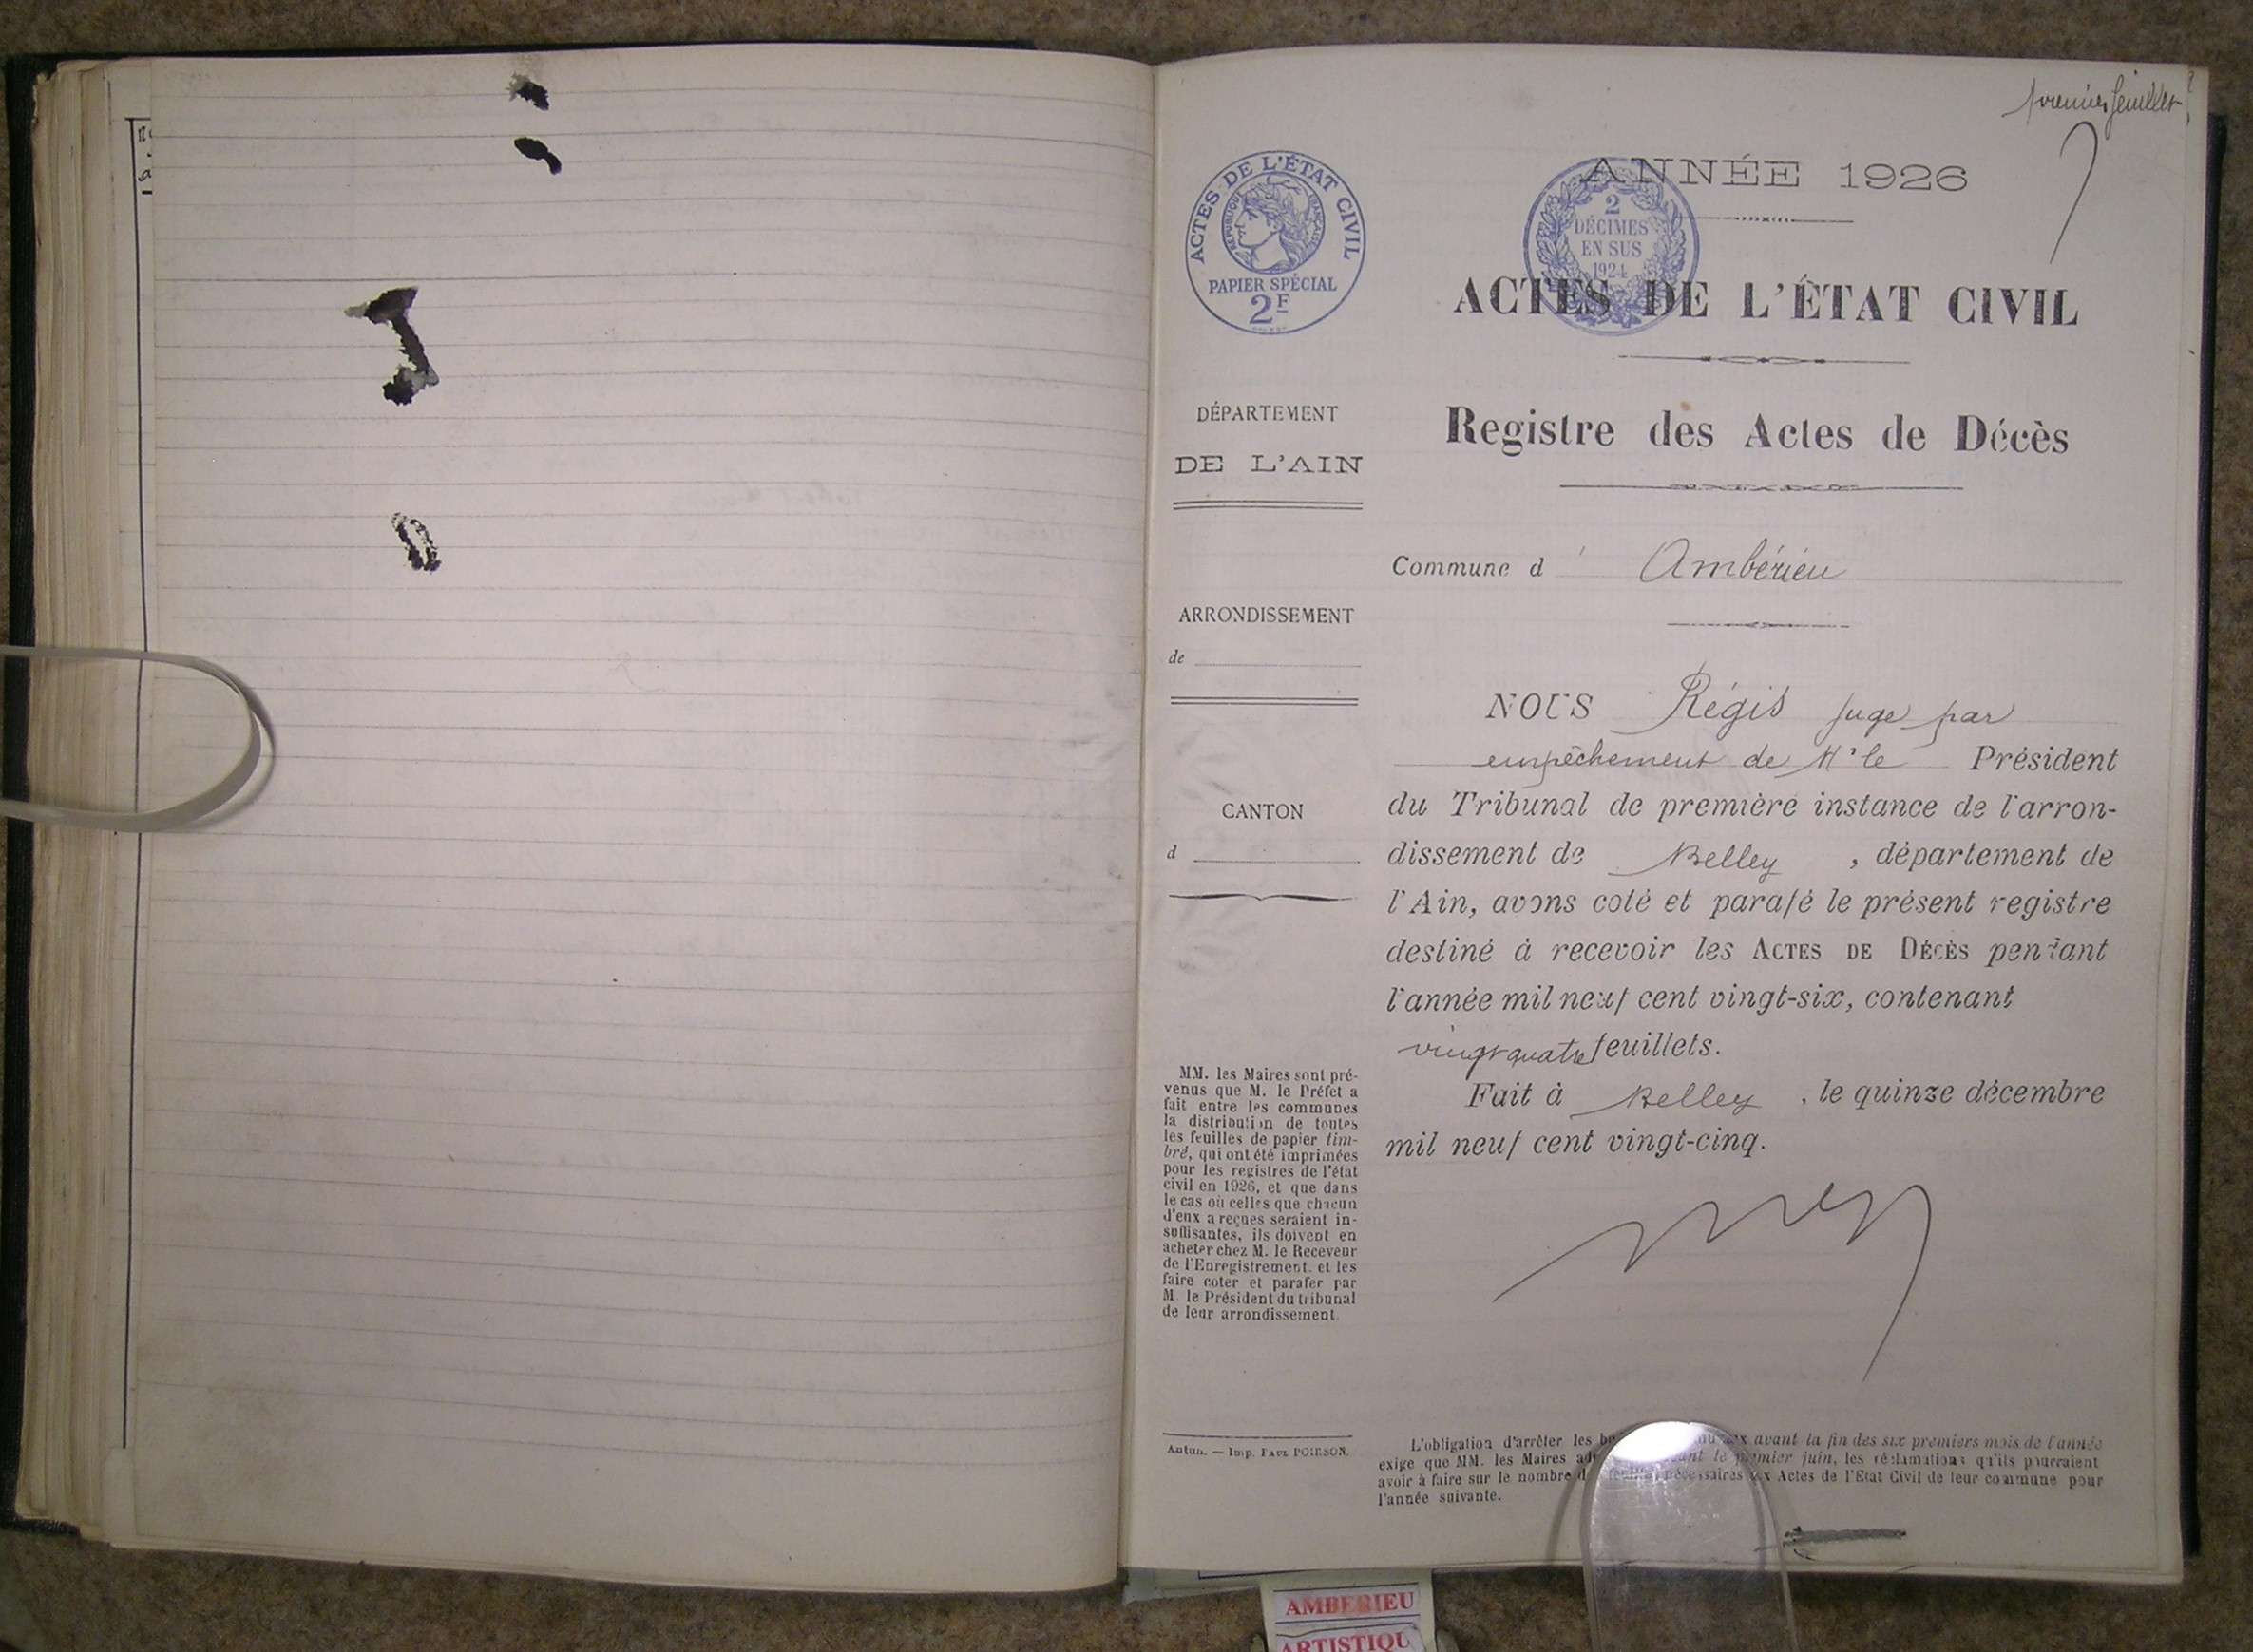 premier feuillet
ANNÉE 1926
ACTES DE L'ÉTAT CIVIL
RÉPUBLIQUE FRANÇAISE
PAPIER SPÉCIAL
2F
2
DÉCIMES
EN SUS
1924
ACTES DE L'ÉTAT CIVIL
Registre des Actes de Décès
DÉPARTEMENT
DE L'AIN
Commune d' Ambérieu
ARRONDISSEMENT
de
CANTON
d
NOUS Régis juge par
empêchement de Mr le Président
du Tribunal de première instance de l'arron-
dissement de Belley, département de
l'Ain, avons coté et parafé le présent registre
destiné à recevoir les ACTES DE DÉCÈS pendant
l'année mil neuf cent vingt-six, contenant
vingt quatre feuillets.
Fait à Belley, le quinze décembre
mil neuf cent vingt-cinq.
MM. les Maires sont pré-
venus que M. le Préfet a
fait entre les communes
la distribution de toutes
les feuilles de papier tim-
bré, qui ont été imprimées
pour les registres de l'état
civil en 1926, et que dans
le cas où celles que chacun
d'eux a reçues seraient in-
suffisantes, ils doivent en
acheter chez M. le Receveur
de l'Enregistrement, et les
faire coter et parafer par
M. le Président du tribunal
de leur arrondissement.
Autun. — Imp. PAUL POIRSON.
L'obligation d'arrêter les avant la fin des six premiers mois de l'année
exige que MM. les Maires avant le premier juin, les réclamations qu'ils pourraient
avoir à faire sur le nombre de feuilles nécessaires aux Actes de l'Etat Civil de leur commune pour
l'année suivante.
AMBERIEU
ARTISTIQU